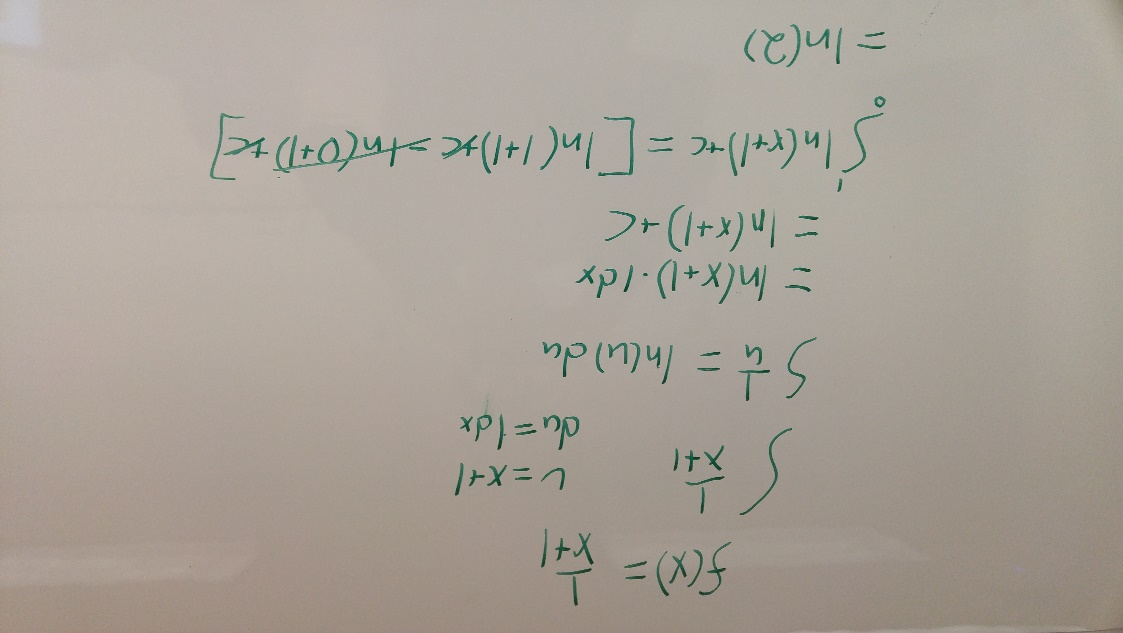 f(x) = 1/(x+1)
∫ 1/(x+1) u = x+1
du = 1dx
∫ 1/u = ln(u) du
= ln(x+1)·1dx
= ln(x+1)+c
∫₀¹ ln(x+1)+c = [ln(1+1)+c - ln(0+1)+c]
= ln(2)